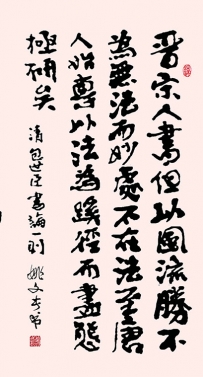 晋宗人書但以風流勝不
為無法而妙處不在法至唐
人始專以法為蹊徑而盡態
極研矣
清包世臣書論一則 姚文奎書